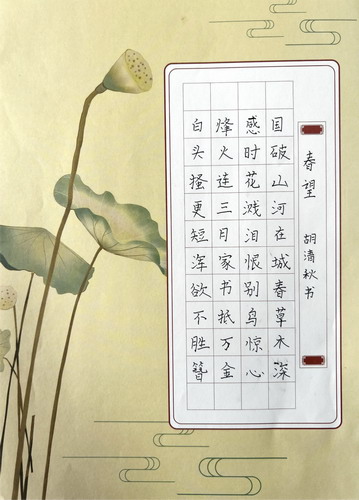 春望 胡清秋书
国破山河在城春草木深
感时花溅泪恨别鸟惊心
烽火连三月家书抵万金
白头搔更短浑欲不胜簪